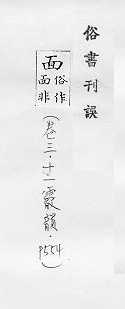 俗書刊誤
面
俗作
面非
(卷三·十一霰韻·P554)